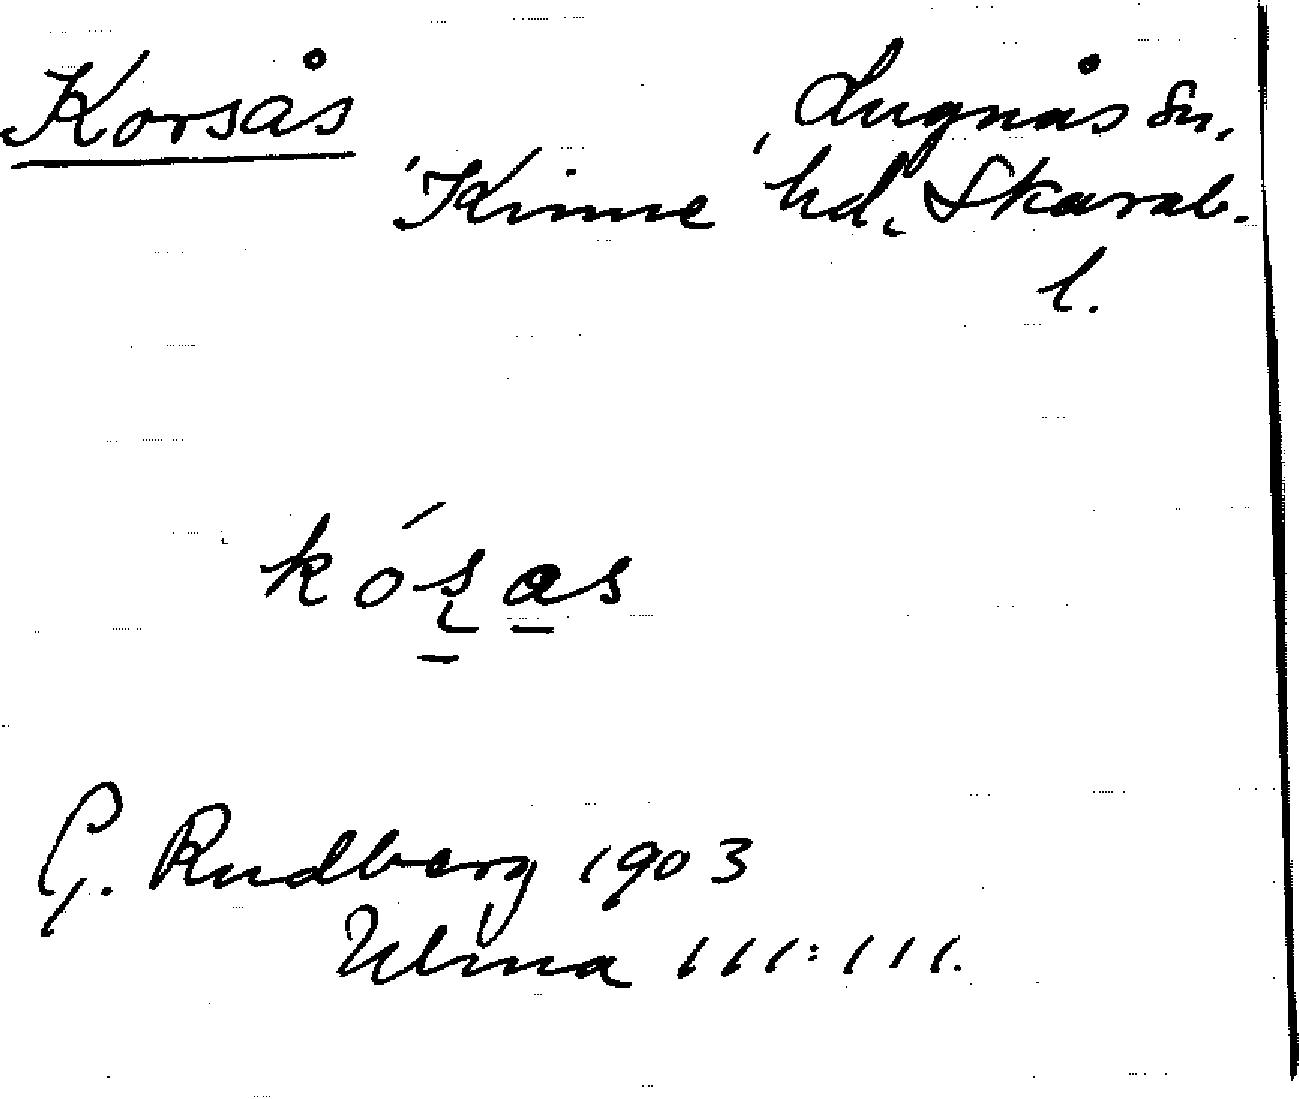 Korsås Lugnås sn,
Kinne hd, Skarab.
l.
kó̱ʂa̱s
G. Rudberg 1903
Ulma 111:111.